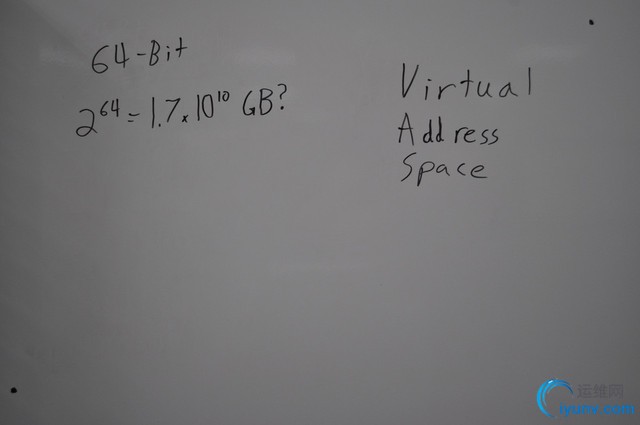 64-Bit
2⁶⁴ = 1.7 × 10¹⁰ GB?
Virtual
Address
Space
运维网
iyunv.com